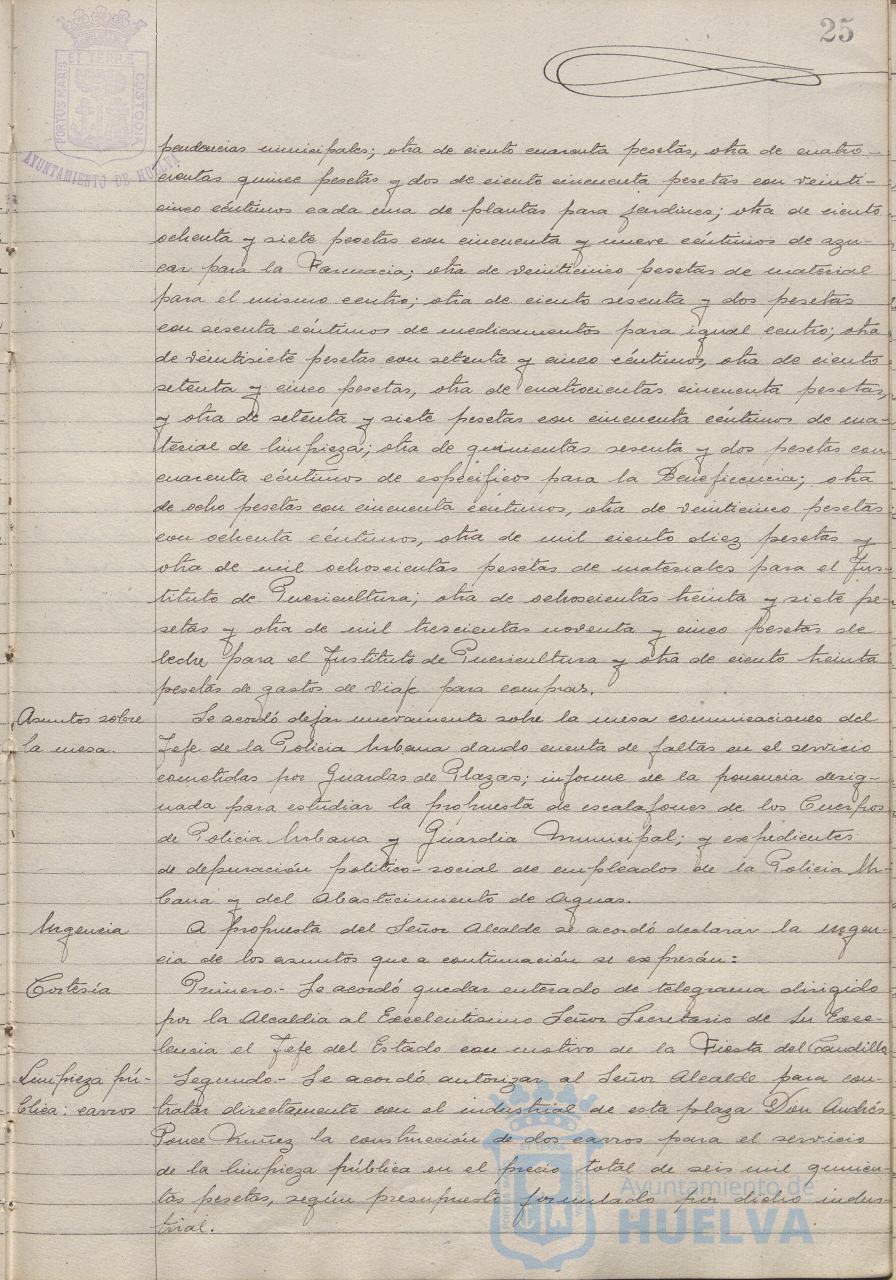 25
ET TERRÆ
PORTUS MARIS
CUSTODIA
AYUNTAMIENTO DE HUELVA
pendencias municipales; otra de ciento cuarenta pesetas, otra de cuatro-
cientas quince pesetas y dos de ciento cincuenta pesetas con veinti-
cinco céntimos cada una de plantas para jardines; otra de ciento
ochenta y siete pesetas con cincuenta y nueve céntimos de azu-
car para la Farmacia; otra de veinticinco pesetas de material
para el mismo centro; otra de ciento sesenta y dos pesetas
con sesenta céntimos de medicamentos para igual centro; otra
de veintisiete pesetas con setenta y cinco céntimos, otra de ciento
setenta y cinco pesetas, otra de cuatrocientas cincuenta pesetas,
y otra de setenta y siete pesetas con cincuenta céntimos de ma-
terial de limpieza; otra de quinientas sesenta y dos pesetas con
cuarenta céntimos de específicos para la Beneficencia; otra
de ocho pesetas con cincuenta céntimos, otra de veinticinco pesetas
con ochenta céntimos, otra de mil ciento diez pesetas y
otra de mil ochoscientas pesetas de materiales para el Ins-
tituto de Puericultura; otra de ochoscientas treinta y siete pe-
setas y otra de mil trescientas noventa y cinco pesetas de
leche para el Instituto de Puericultura y otra de ciento treinta
pesetas de gastos de viaje para compras.
Asuntos sobre
la mesa.
Se acordó dejar nuevamente sobre la mesa comunicaciones del
Jefe de la Policia Urbana dando cuenta de faltas en el servicio
cometidas por Guardas de Plazas; informe de la ponencia desig-
nada para estudiar la propuesta de escalafones de los Cuerpos
de Policia Urbana y Guardia Municipal; y expedientes
de depuración politico-social de empleados de la Policia Ur-
bana y del Abastecimiento de Aguas.
Urgencia
A propuesta del Señor Alcalde se acordó declarar la urgen-
cia de los asuntos que a continuación se expresán:
Cortesía
Primero.- Se acordó quedar enterado de telegrama dirigido
por la Alcaldia al Excelentisimo Señor Secretario de Su Exce-
lencia el Jefe del Estado con motivo de la Fiesta del Caudillo
Limpieza pú-
blica: carros
Segundo.- Se acordó autorizar al Señor Alcalde para con-
tratar directamente con el industrial de esta plaza Don Andrés
Ponce Muñez la construcción de dos carros para el servicio
de la limpieza pública en el precio total de seis mil quinien-
tas pesetas, según presupuesto formulado por dicho indus-
trial.
Ayuntamiento de
HUELVA